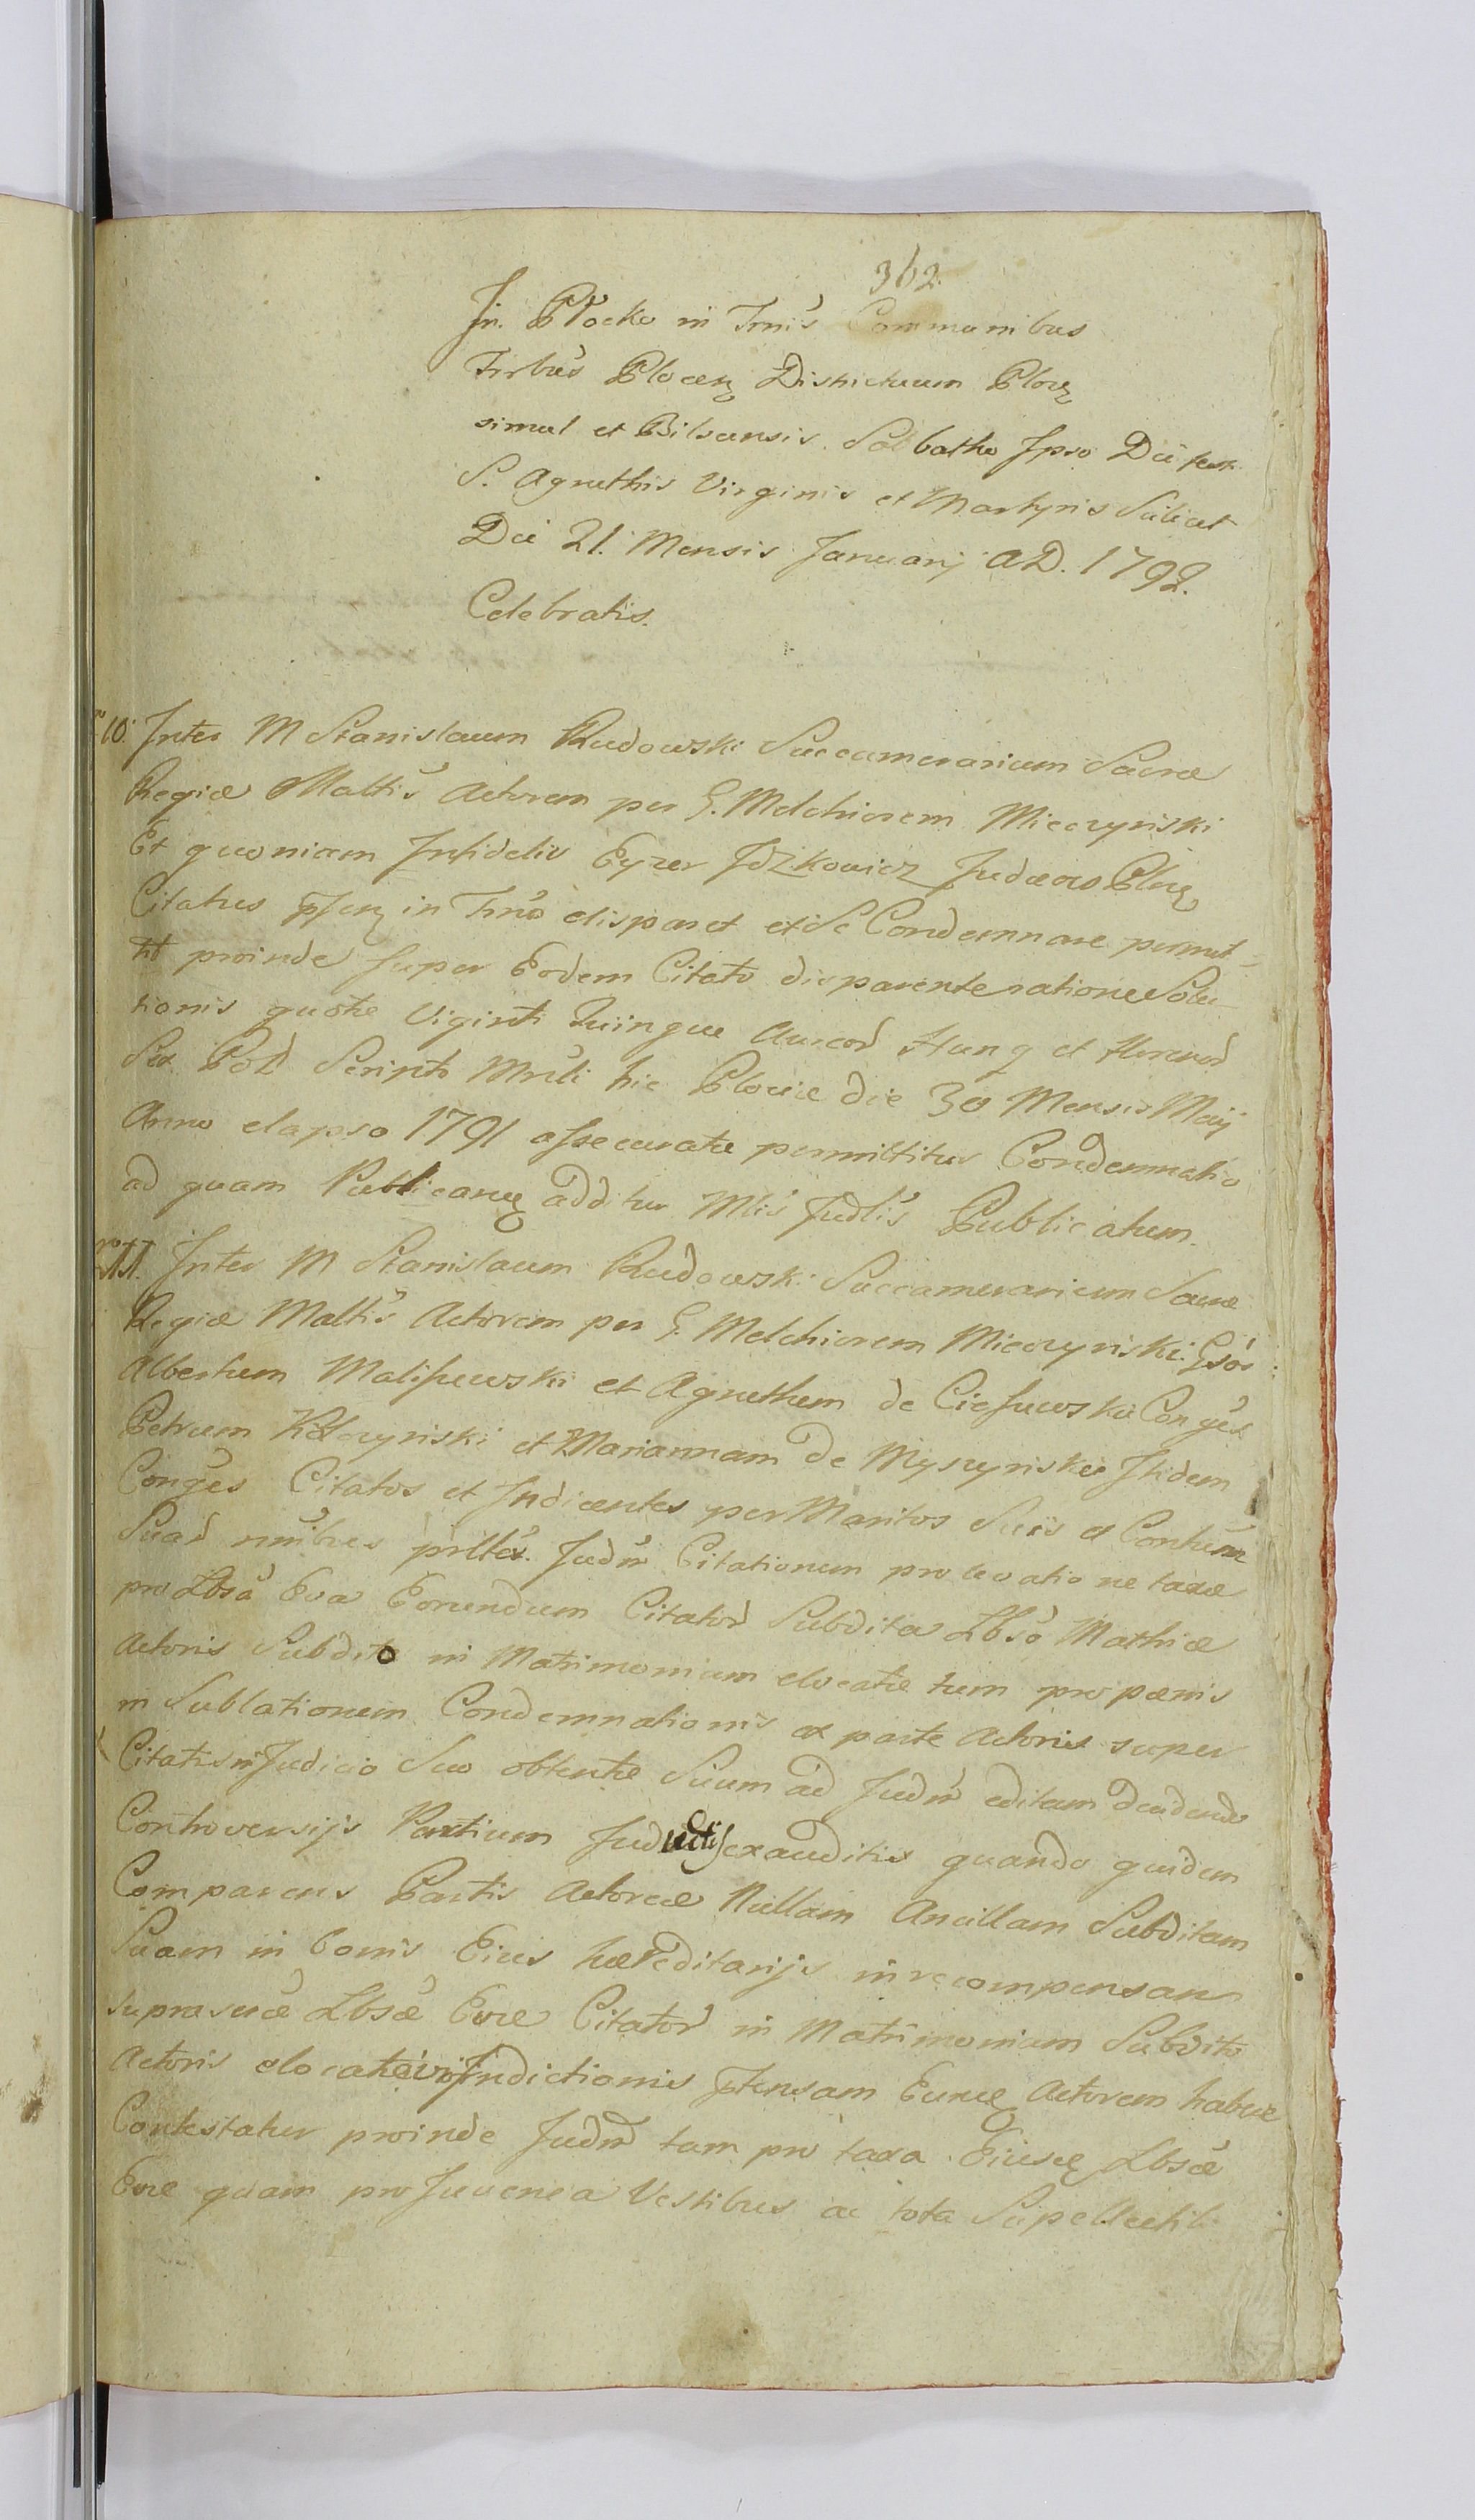 362.
In. Płocko in Trnis Communibus
Trrbus Plocen Districtuum Plocen
simul et Bilscensis Sabbatho Ipso Die fest
S. Agnethis Virginis et Martyris Scilicet
Die 21. Mensis Januarij AD. 1792.
Celebratis.
10. Inter M Stanislaum Rudowski Succamerarium Sacræ
Regiæ Mattis Actorem per G. Melchiorem Mieczynski
Et quoniam Infidelis Eyzer Jdzkowicz Judæus Plocen
Citatus in Trno disparet et Se Condemnare permit-
tit proinde super Eodem Citato disparente ratione Solu-
tionis quotæ Viginti Quinque Aureor Hung et florenor
Sex Pol Scripto Mnli hic Plociæ die 30 Mensis Maij
Anno elapso 1791 assecuratæ permittitur Condemnatio
ad quam Publicane additur Mlis Judlis Publicatum.
11. Inter M Stanislaum Rudowski Succamerarium Sacræ
Regiæ Mattis Actorem per G. Melchiorem Mieczynski. Gsos
Albertum Maliszewski et Agnethem de Cieszewskie Conges
Petrum Kólczynski et Mariannam de Myszynskie Itidem
Conges Citatos et Indicentes per Maritos Suis et Contum
Suar nnibus prlltes. Judm Citationem pro levatione taxæ
pro Lbsa Eva Eorundum Citator Subdita Lbso Mathiæ
Actoris Subdito in Matrimonium elocatæ tum pro pænis
in Sublationem Condemnationis ex parte Actoris super
Citatis in Judicio Suo obtentæ Suum ad Judm editam
Controversijs Partium exauditis quando quidem
Comparens Partis Actoreæ Nullam Ancillam Subditam
Suam in bonis Eius hæreditarijs in recompensam
supra Lbsæ Evæ Citator in Matrimonium Subdito
Actoris elocatæ Indictionis Actorem habere
Contestatur proinde Judm tam pro taxa Lbsæ
Evæ quam pro Juvenca Vestibus ac tota Supellectili